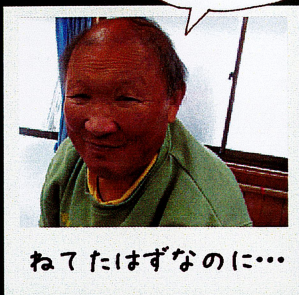 ねてたはずなのに・・・